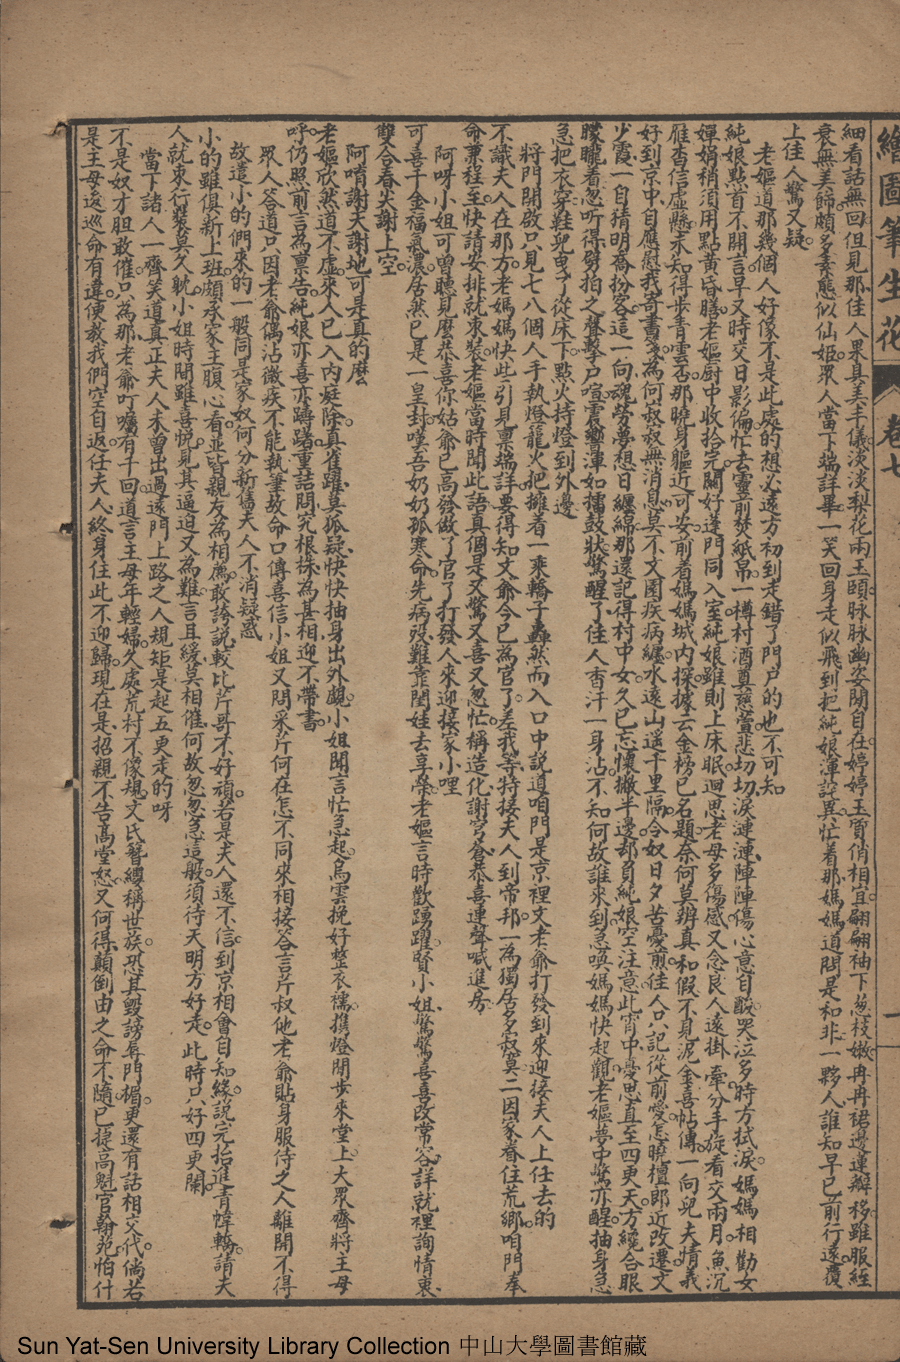 繪圖筆生花　卷七　一
細看話無回但見那佳人果具美丰儀淡淡梨花雨玉頤脉脉幽姿閒自在婷婷玉質俏相宜翩翩袖下葱枝嫩冉冉裙邊蓮瓣移雖服絰
衰無美飾頗多喜態似仙姬眾人當下端詳畢一笑回身走似飛到把純娘渾詫異忙着那媽媽道問是和非一夥人誰知早已前行遠覆
上佳人驚又疑
老嫗道那幾個人好像不是此處的想必遠方初到走錯了門户的也不可知
純娘點首不開言早又時交日影偏忙去靈前焚紙帛一樽村酒奠慈萱悲切切淚漣漣陣陣傷心意自酸哭泣多時方拭淚媽媽相勸女
嬋娟稍須用點黃昏膳老嫗廚中收拾完關好蓬門同入室純娘雖則上床眠迴思老母多傷感又念良人遠掛牽分手旋看交兩月魚沉
雁杳信虛懸未知得步青雲否那曉身軀近可安前着媽媽城內探據云金榜已名題奈何莫辨真和假不見泥金喜帖傳一向兒夫情義
好到京中自應慰我寄書箋為何叔叔無消息莫不文園疾病纏水遠山遥千里隔令奴日夕苦憂煎佳人只記從前愛怎曉檀郎近改遷文
少霞一自猜明喬扮客這一向魂勞夢想日纏綿那還記得村中女久已忘懷撇半邊却負純娘空注意此宵中憂思直至四更天方纔合眼
朦朧着忽听得劈拍之聲擊户喧震動渾如擂鼓狀驚醒了佳人香汗一身沾不知何故誰來到急喚媽媽快起觀老嫗夢中驚亦醒抽身急
急把衣穿鞋兒曳了從床下點火持燈到外邊
將門開啟只見七八個人手執燈籠火把擁着一乘轎子轟然而入口中說道咱門是京裡文老爺打發到來迎接夫人上任去的
不識夫人在那方老媽媽快此引見稟端詳要得知文爺今已為官了差我等特接夫人到帝邦一為獨居多寂寞二因家眷住荒鄉咱門奉
命兼程至快請安排就束裝老嫗當時聞此語真個是又驚又喜又忽忙稱造化謝穹蒼恭喜連聲喊進房
阿呀小姐可曾聽見麼恭喜你姑爺已高發做了官了打發人來迎接家小哩
可喜千金福氣濃居然已是一皇封嘆吾奶奶孤寒命先病歿難靠閨娃去享榮老嫗言時歡踴躍賢小姐驚驚喜喜改常容詳就裡詢情衷
雙合春矣謝上空
阿唷謝天謝地可是真的麼
老嫗欣然道不虛來人已入內庭除真雀躍莫狐疑快快抽身出外覷小姐聞言忙急起烏雲挽好整衣襦攜燈開步來堂上大眾齊將主母
呼仍照前言為稟告純娘亦喜亦躊躇重詰問究根株為甚相迎不帶書
眾人答道只因老爺偶沾微疾不能執筆故命口傳喜信小姐又問采芹何在怎不同來相接答言芹叔他老爺貼身服侍之人離開不得
故遣小的們來的一般同是家奴何分新舊夫人不消疑惑
小的雖俱新上班頗承家主腹心看並皆親友為相薦敢誇説較比芹哥才好頑若是夫人還不信到京相會自知緣説完抬進青幃轎請夫
人就束行裝莫久躭小姐時聞雖喜悅見其逼迫又為難言且緩莫相催何故忽忽急這般須待天明方好走此時只好四更闌
當下諸人一齊笑道真正夫人未曾出過遠門上路之人規矩是起五更走的呀
不是奴才胆敢催只為那老爺叮囑有千回道言主母年輕婦久處荒村不像規文氏簪纓稱世族恐其毀謗辱門楣更還有話相交代倘若
是主母返巡命有違便教我們空自返任夫人終身住此不迎歸現在是招親不告高堂怒又何得顛倒由之命不隨已捷高魁官翰苑怕什
Sun Yat-Sen University Library Collection 中山大學圖書館藏